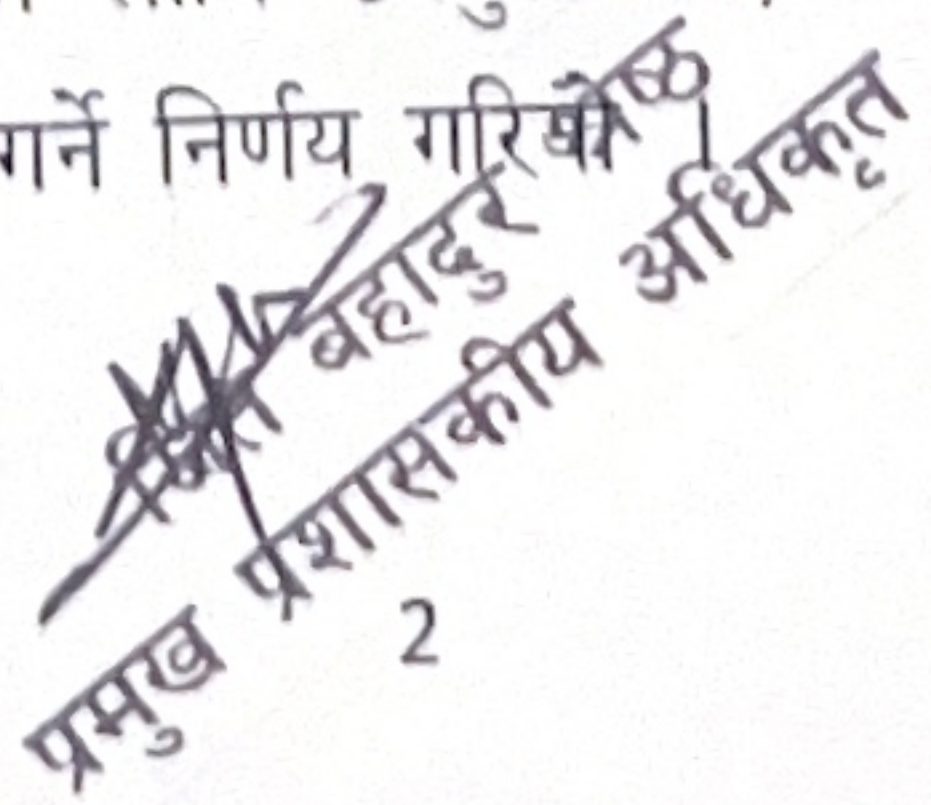 गर्ने निर्णय गरियो ।
बहादुर श्रेष्ठ
प्रमुख प्रशासकीय अधिकृत
2